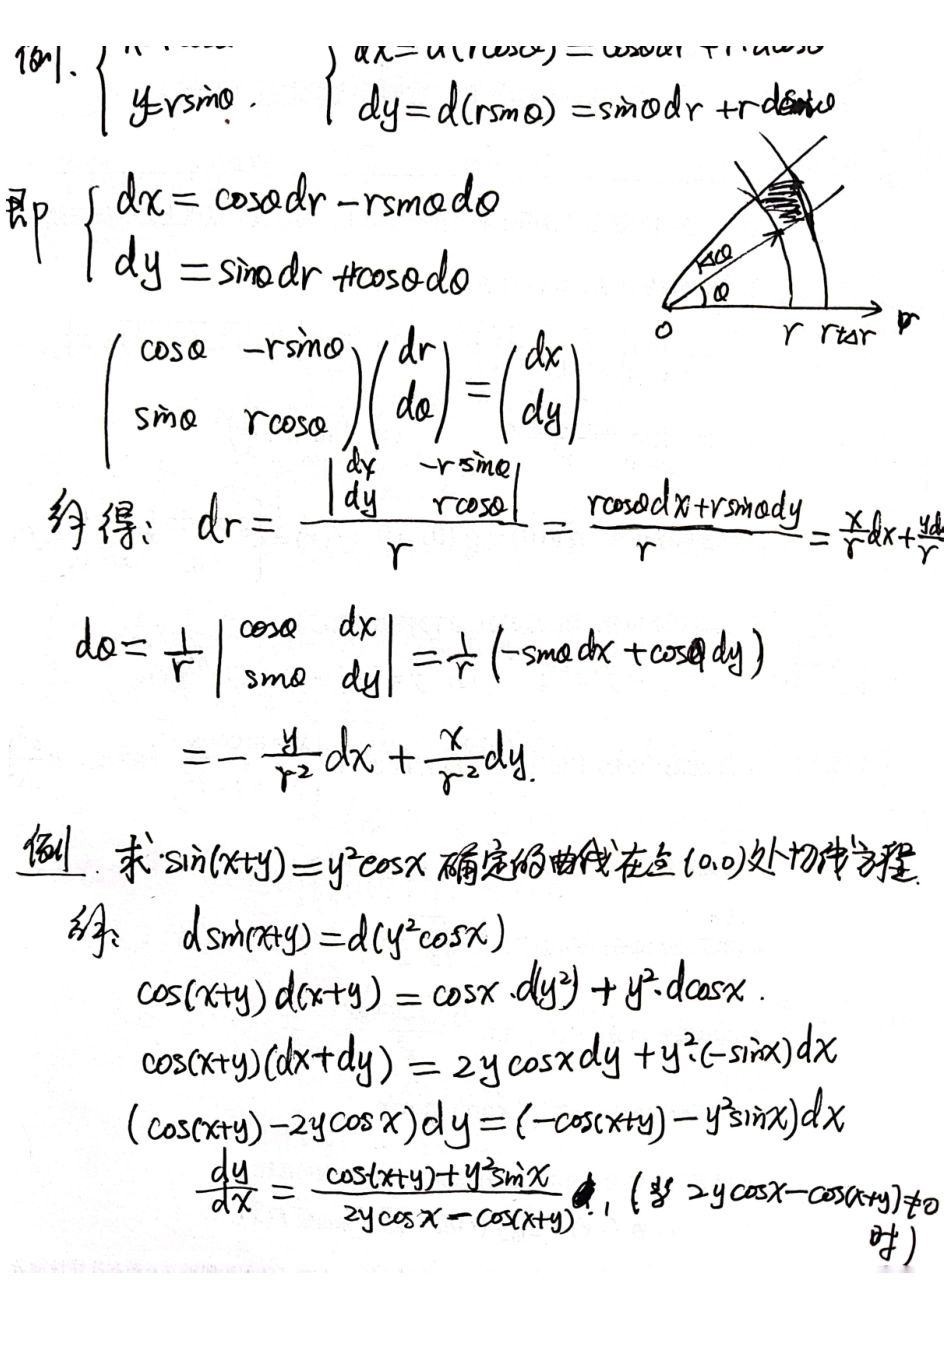 例.
y=rsinθ.
dy=d(rsinθ)=sinθdr+rdsinθ
即 { dx=cosθdr-rsinθdθ
dy=sinθdr+rcosθdθ
Δθ
θ
0 r r+Δr
( cosθ -rsinθ ) ( dr ) = ( dx )
( sinθ rcosθ ) ( dθ ) ( dy )
解得: dr= | dx -rsinθ; dy rcosθ | / r = (rcosθdx+rsinθdy)/r = x/r dx+ y/r
dθ= 1/r | cosθ dx; sinθ dy | = 1/r (-sinθdx+cosθdy)
= - y/r² dx + x/r² dy.
例. 求sin(x+y)=y²cosx 确定的曲线在点(0,0)处切线方程.
解: dsin(x+y)=d(y²cosx)
cos(x+y)d(x+y)=cosx·d(y²)+y²·dcosx.
cos(x+y)(dx+dy)=2ycosxdy+y²·(-sinx)dx
(cos(x+y)-2ycosx)dy=(-cos(x+y)-y²sinx)dx
dy/dx = (cos(x+y)+y²sinx)/(2ycosx-cos(x+y)), (当 2ycosx-cos(x+y)≠0
时)